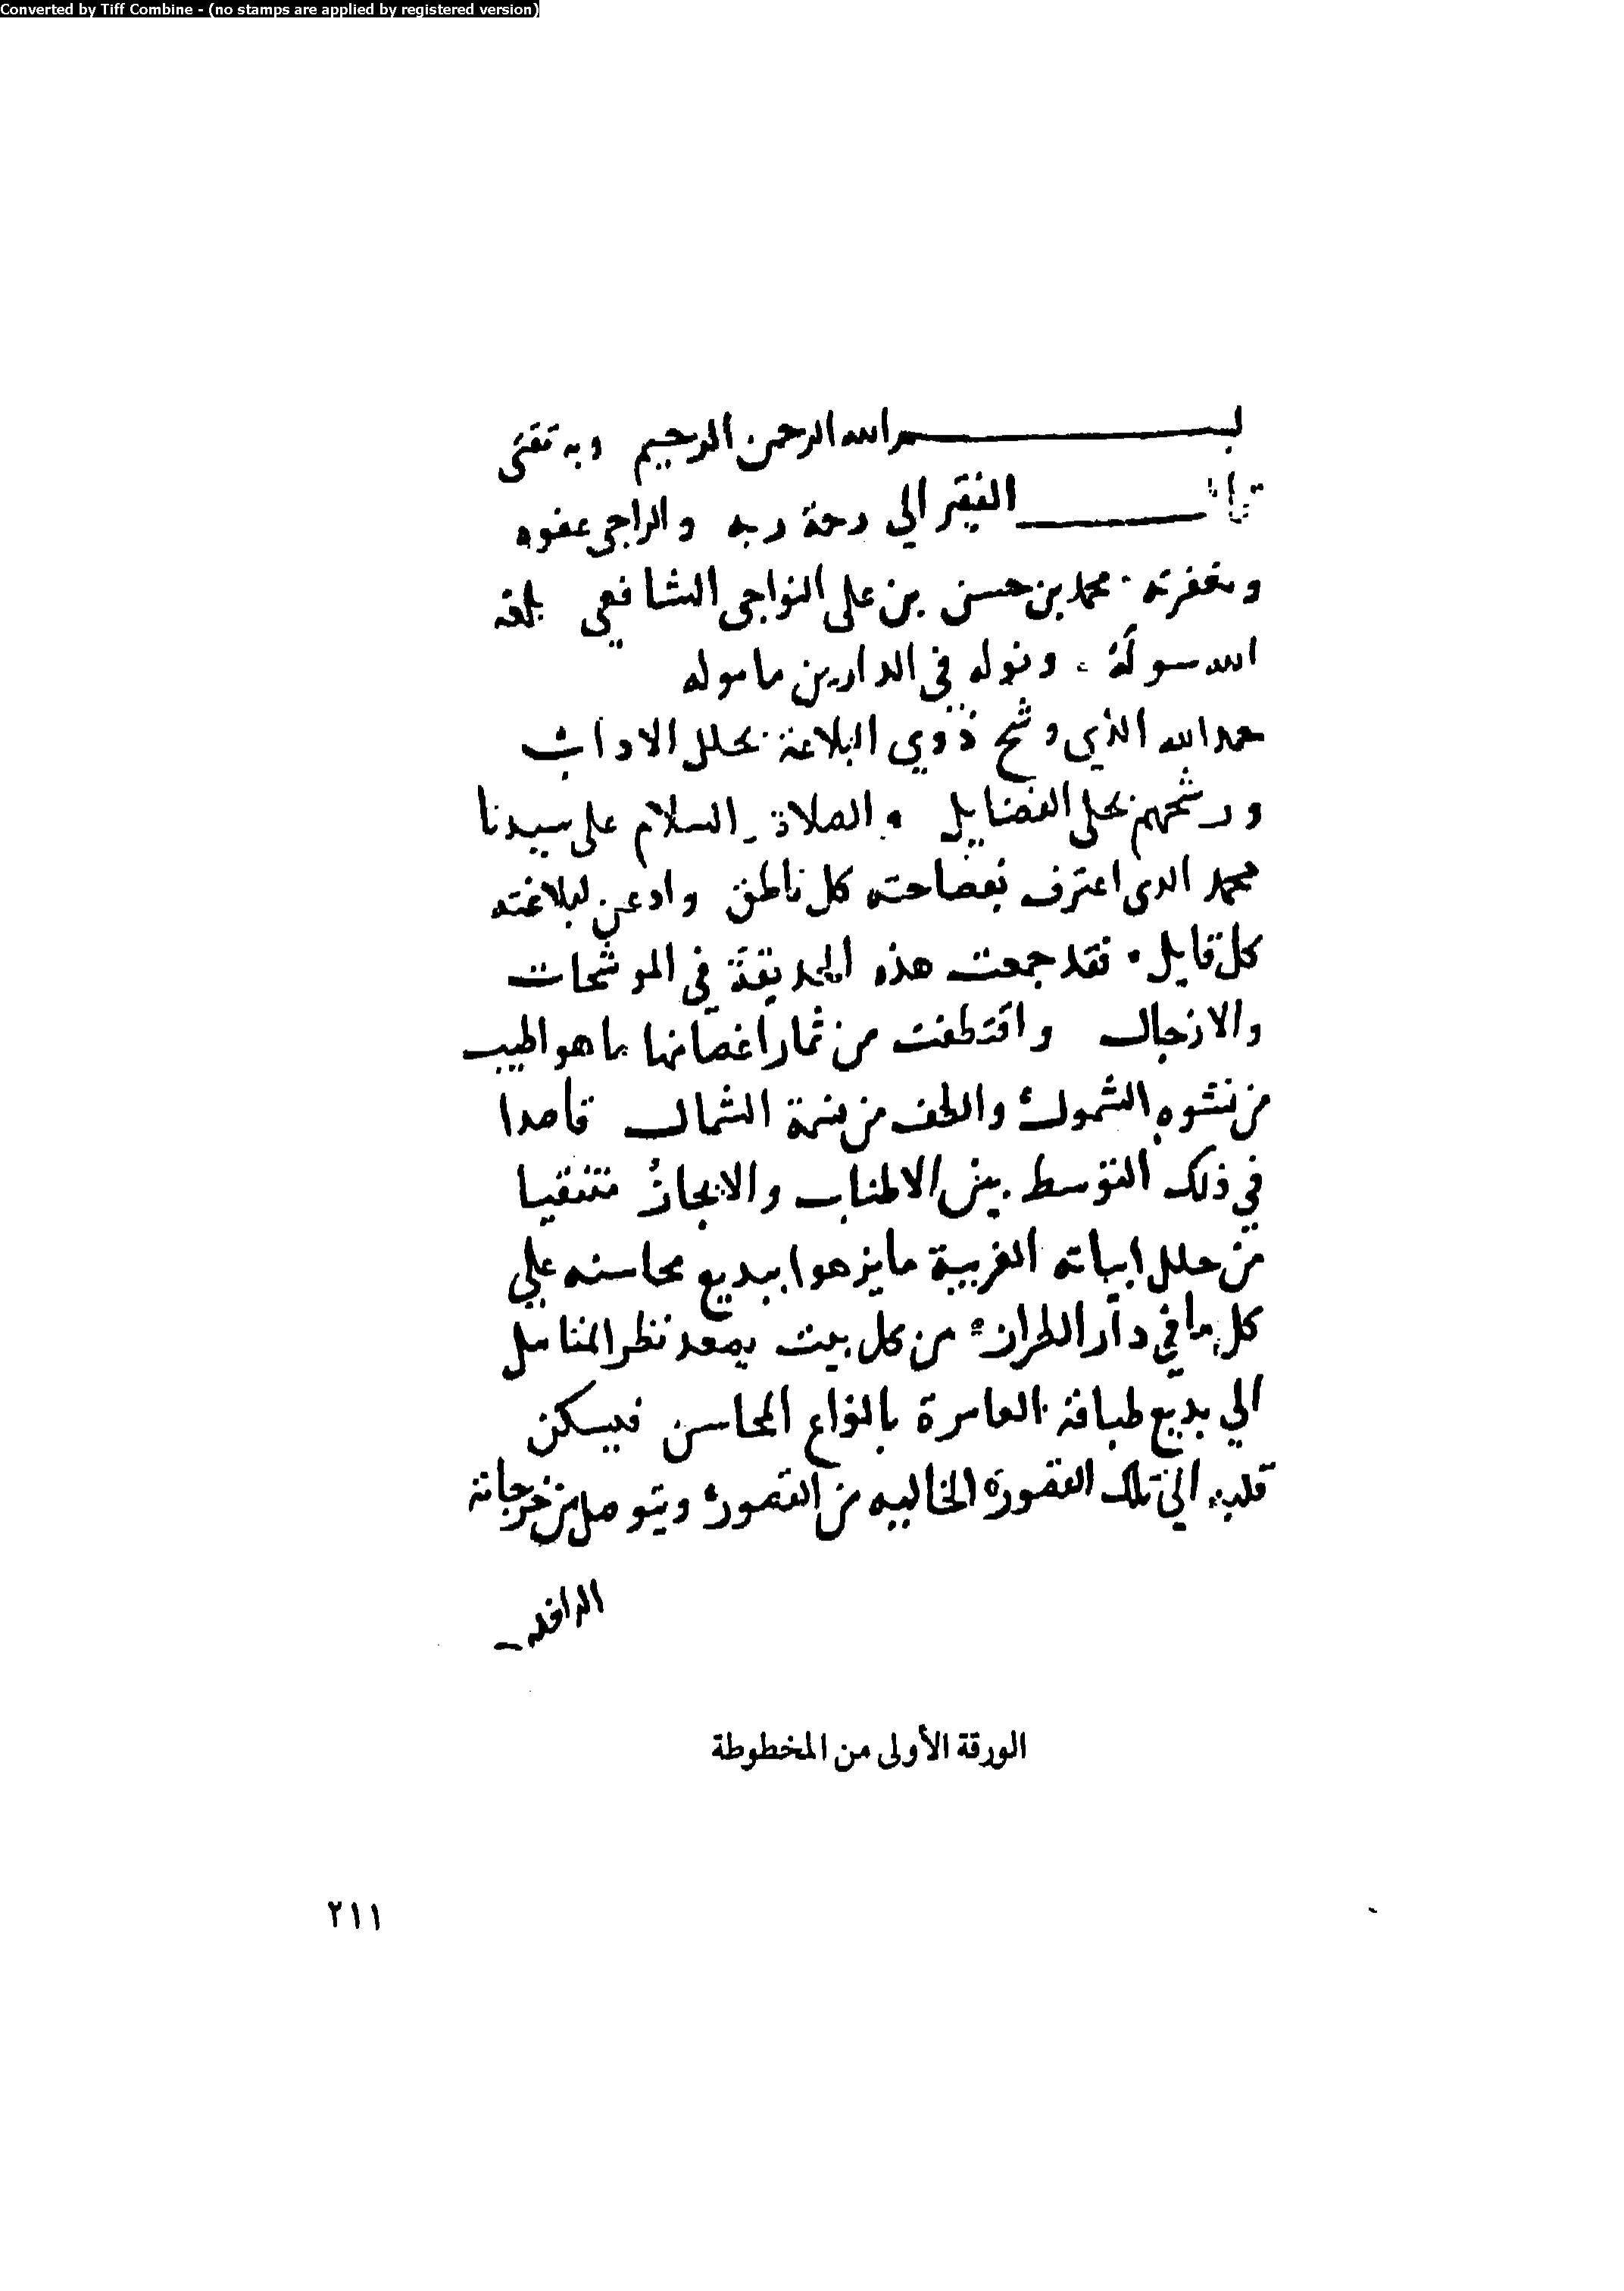 Converted by Tiff Combine - (no stamps are applied by registered version)
بسم الله الرحمن الرحيم وبه ثقتي
الفقير الي رحمة ربه والراجي عفوه
ومغفرته محمد بن حسن بن علي النواجي الشافعي بلغه
الله سوله ونوله في الدارين ماموله
حمد الله الذي وشح ذوي البلاغة بحلل الاداب
ورشحهم بحلي الفضايل والصلاة والسلام على سيدنا
محمد الدى اعترف بفصاحته كل ناطق وادعن لبلاغته
كل قايل فقد جمعت هذه الحديقة في الموشحات
والازجال واقتطفت من ثمار اغصانها ما هو اطيب
من نشوه الشمول والطف من نسمة الشمال قاصدا
في ذلك التوسط بين الاطناب والايجاز منتقيا
من حلل ابياته الغريبة ما يزهوا ببديع محاسنه علي
كل ما في دار الطراز من كل بيت يصعد نظر المتامل
الي بديع طباقه العامرة بانواع المحاسن فيسكن
قلبه الي تلك القصور الخاليه من القصور ويتوصل من خرجاته
الورقة الأولى من المخطوطة
٢١١